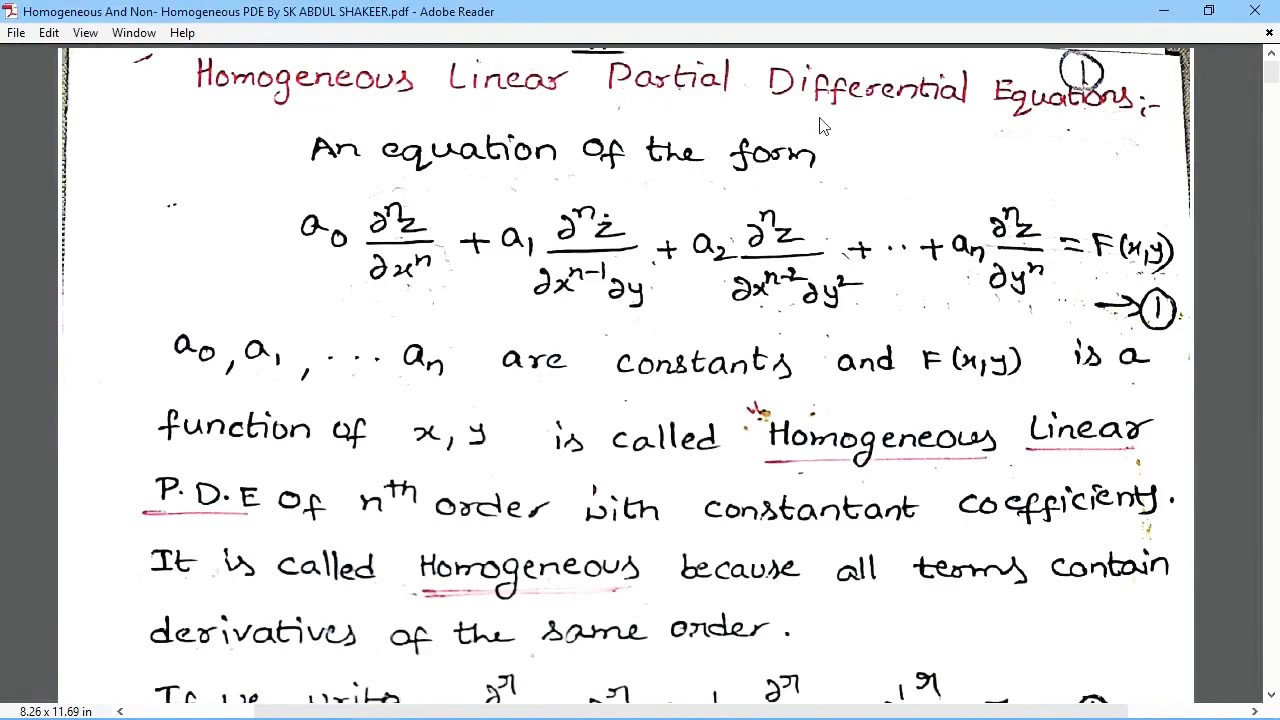 Homogeneous And Non- Homogeneous PDE By SK ABDUL SHAKEER.pdf - Adobe Reader
File Edit View Window Help
①
Homogeneous Linear Partial Differential Equations:-
An equation of the form
a₀ ∂ⁿz/∂xⁿ + a₁ ∂ⁿz/∂xⁿ⁻¹∂y + a₂ ∂ⁿz/∂xⁿ⁻²∂y² + ·· + aₙ ∂ⁿz/∂yⁿ = F(x,y)
→ ①
a₀, a₁, ... aₙ are constants and F(x,y) is a
function of x, y is called Homogeneous Linear
P.D.E of nᵗʰ order with constantant coefficients.
It is called Homogeneous because all terms contain
derivatives of the same order.
If we write
8.26 x 11.69 in